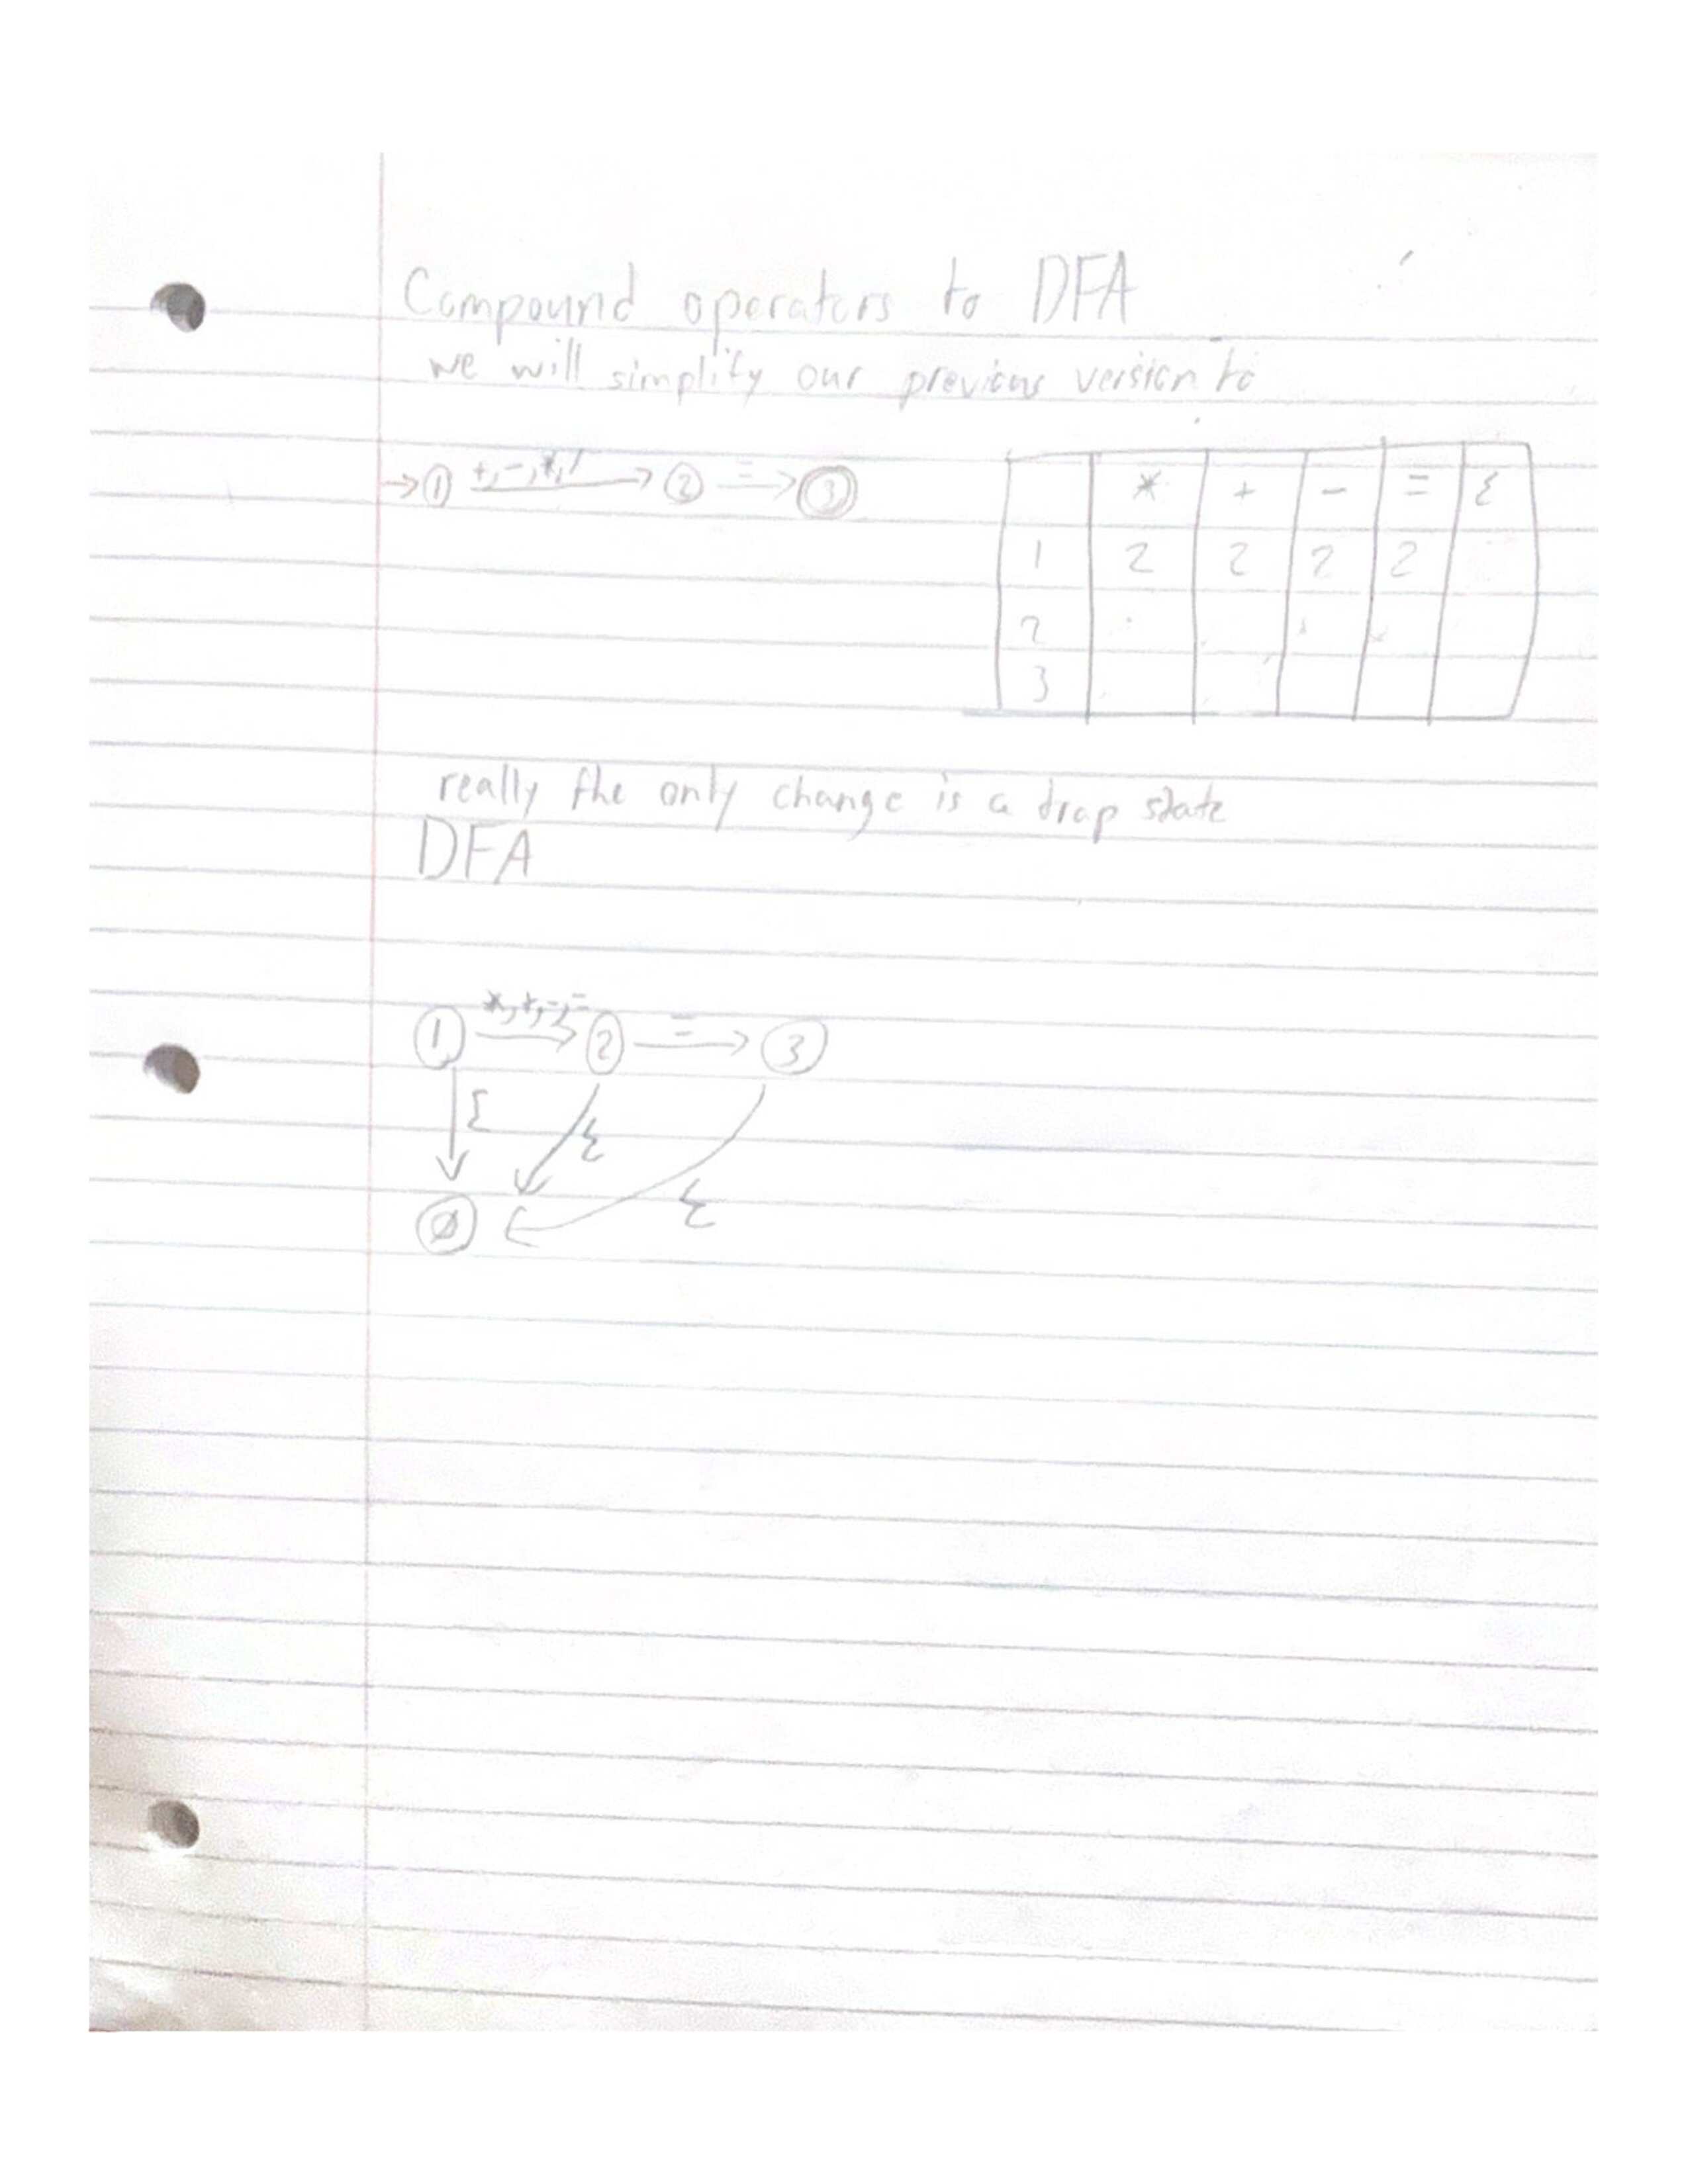 Compound operators to DFA
we will simplify our previous version to
→ 1 +,-,*,/ → 2 = → 3
* + - = ε
1 2 2 2 2
2
3
really the only change is a trap state
DFA
1 *,+,-,= → 2 = → 3
ε ε ε
∅